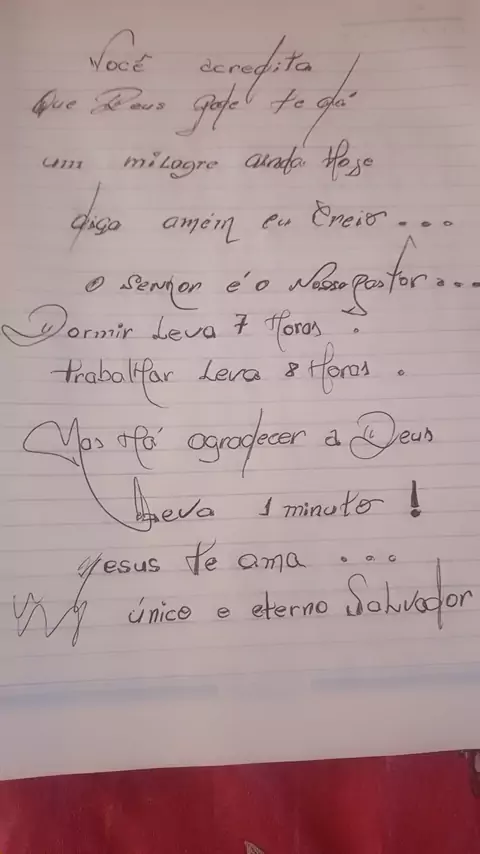 Você acredita
Que Deus pode te dá
um milagre ainda Hoje
diga amém eu Creio...
O Senhor é o Nosso pastor...
Dormir Leva 7 Horas.
trabalHar Leva 8 Horas.
Mas Há agradecer a Deus
Leva 1 minuto!
Jesus te ama...
único e eterno Salvador